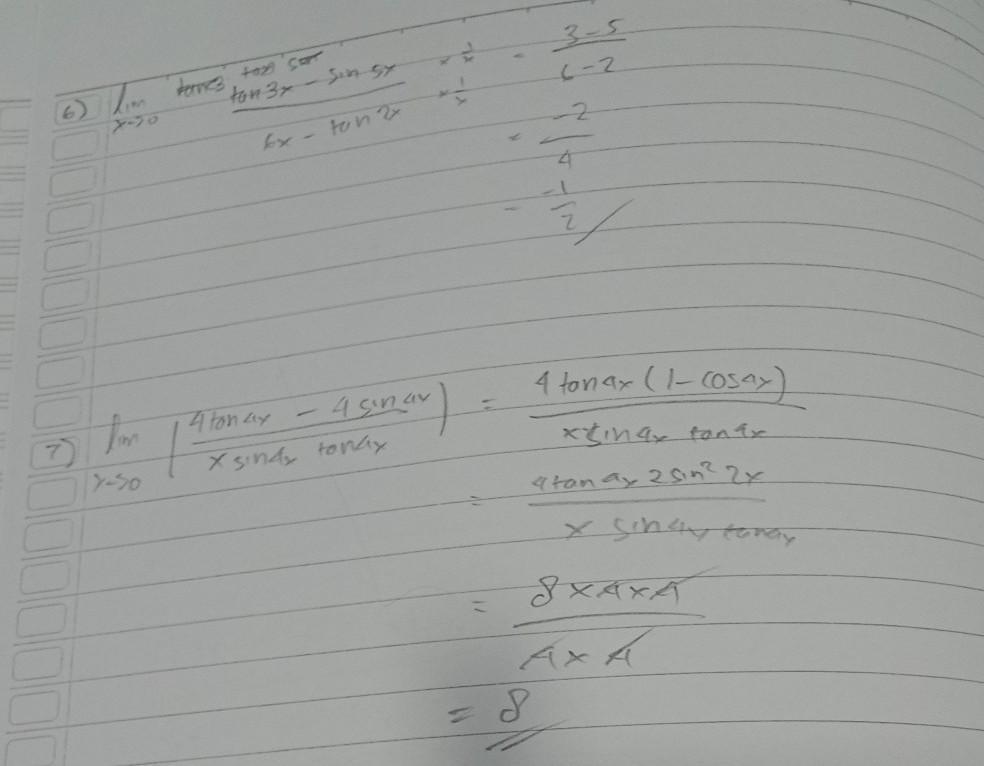 6) lim x->0 (tan 3x - sin 5x)/(6x - tan 2x) × 1/x / × 1/x = (3-5)/(6-2)
= -2/4
= -1/2
7) lim x->0 ((4 tan 4x - 4 sin 4x)/(x sin 4x tan 4x)) = (4 tan 4x (1 - cos 4x))/(x sin 4x tan 4x)
= (4 tan 4x 2 sin² 2x)/(x sin 4x tan 4x)
= (8 × 4 × 4)/(4 × 4)
= 8